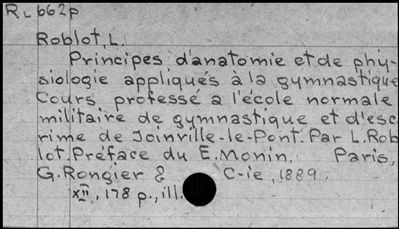 RL 662p
Roblot, L.
Principes d'anatomie et de phy-
siologie appliqués à la gymnastique
Cours professé a l'école normale
militaire de gymnastique et d'esc
rime de Joinville-le-Pont. Par L. Rob
lot. Préface du E. Monin. Paris,
G. Rongier & C-ie, 1889.
XII, 178 p., ill.